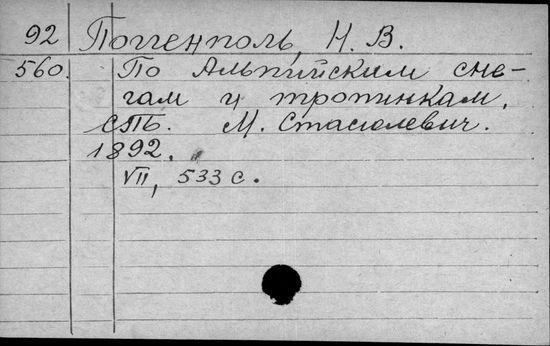 92 Поггенполь, Н. В.
560. По Альпийским сне-
гам и тропинкам.
СПБ. М. Стасюлевич.
1892.
VII, 533 с.